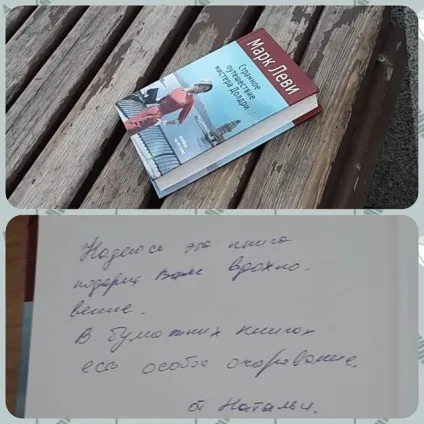 Марк Леви
Странное
путешествие
мистера Долдри
Надеюсь эта книга
подарит Вам вдохно-
вение.
В бумажных книгах
есть особое очарование.
от Натальи.